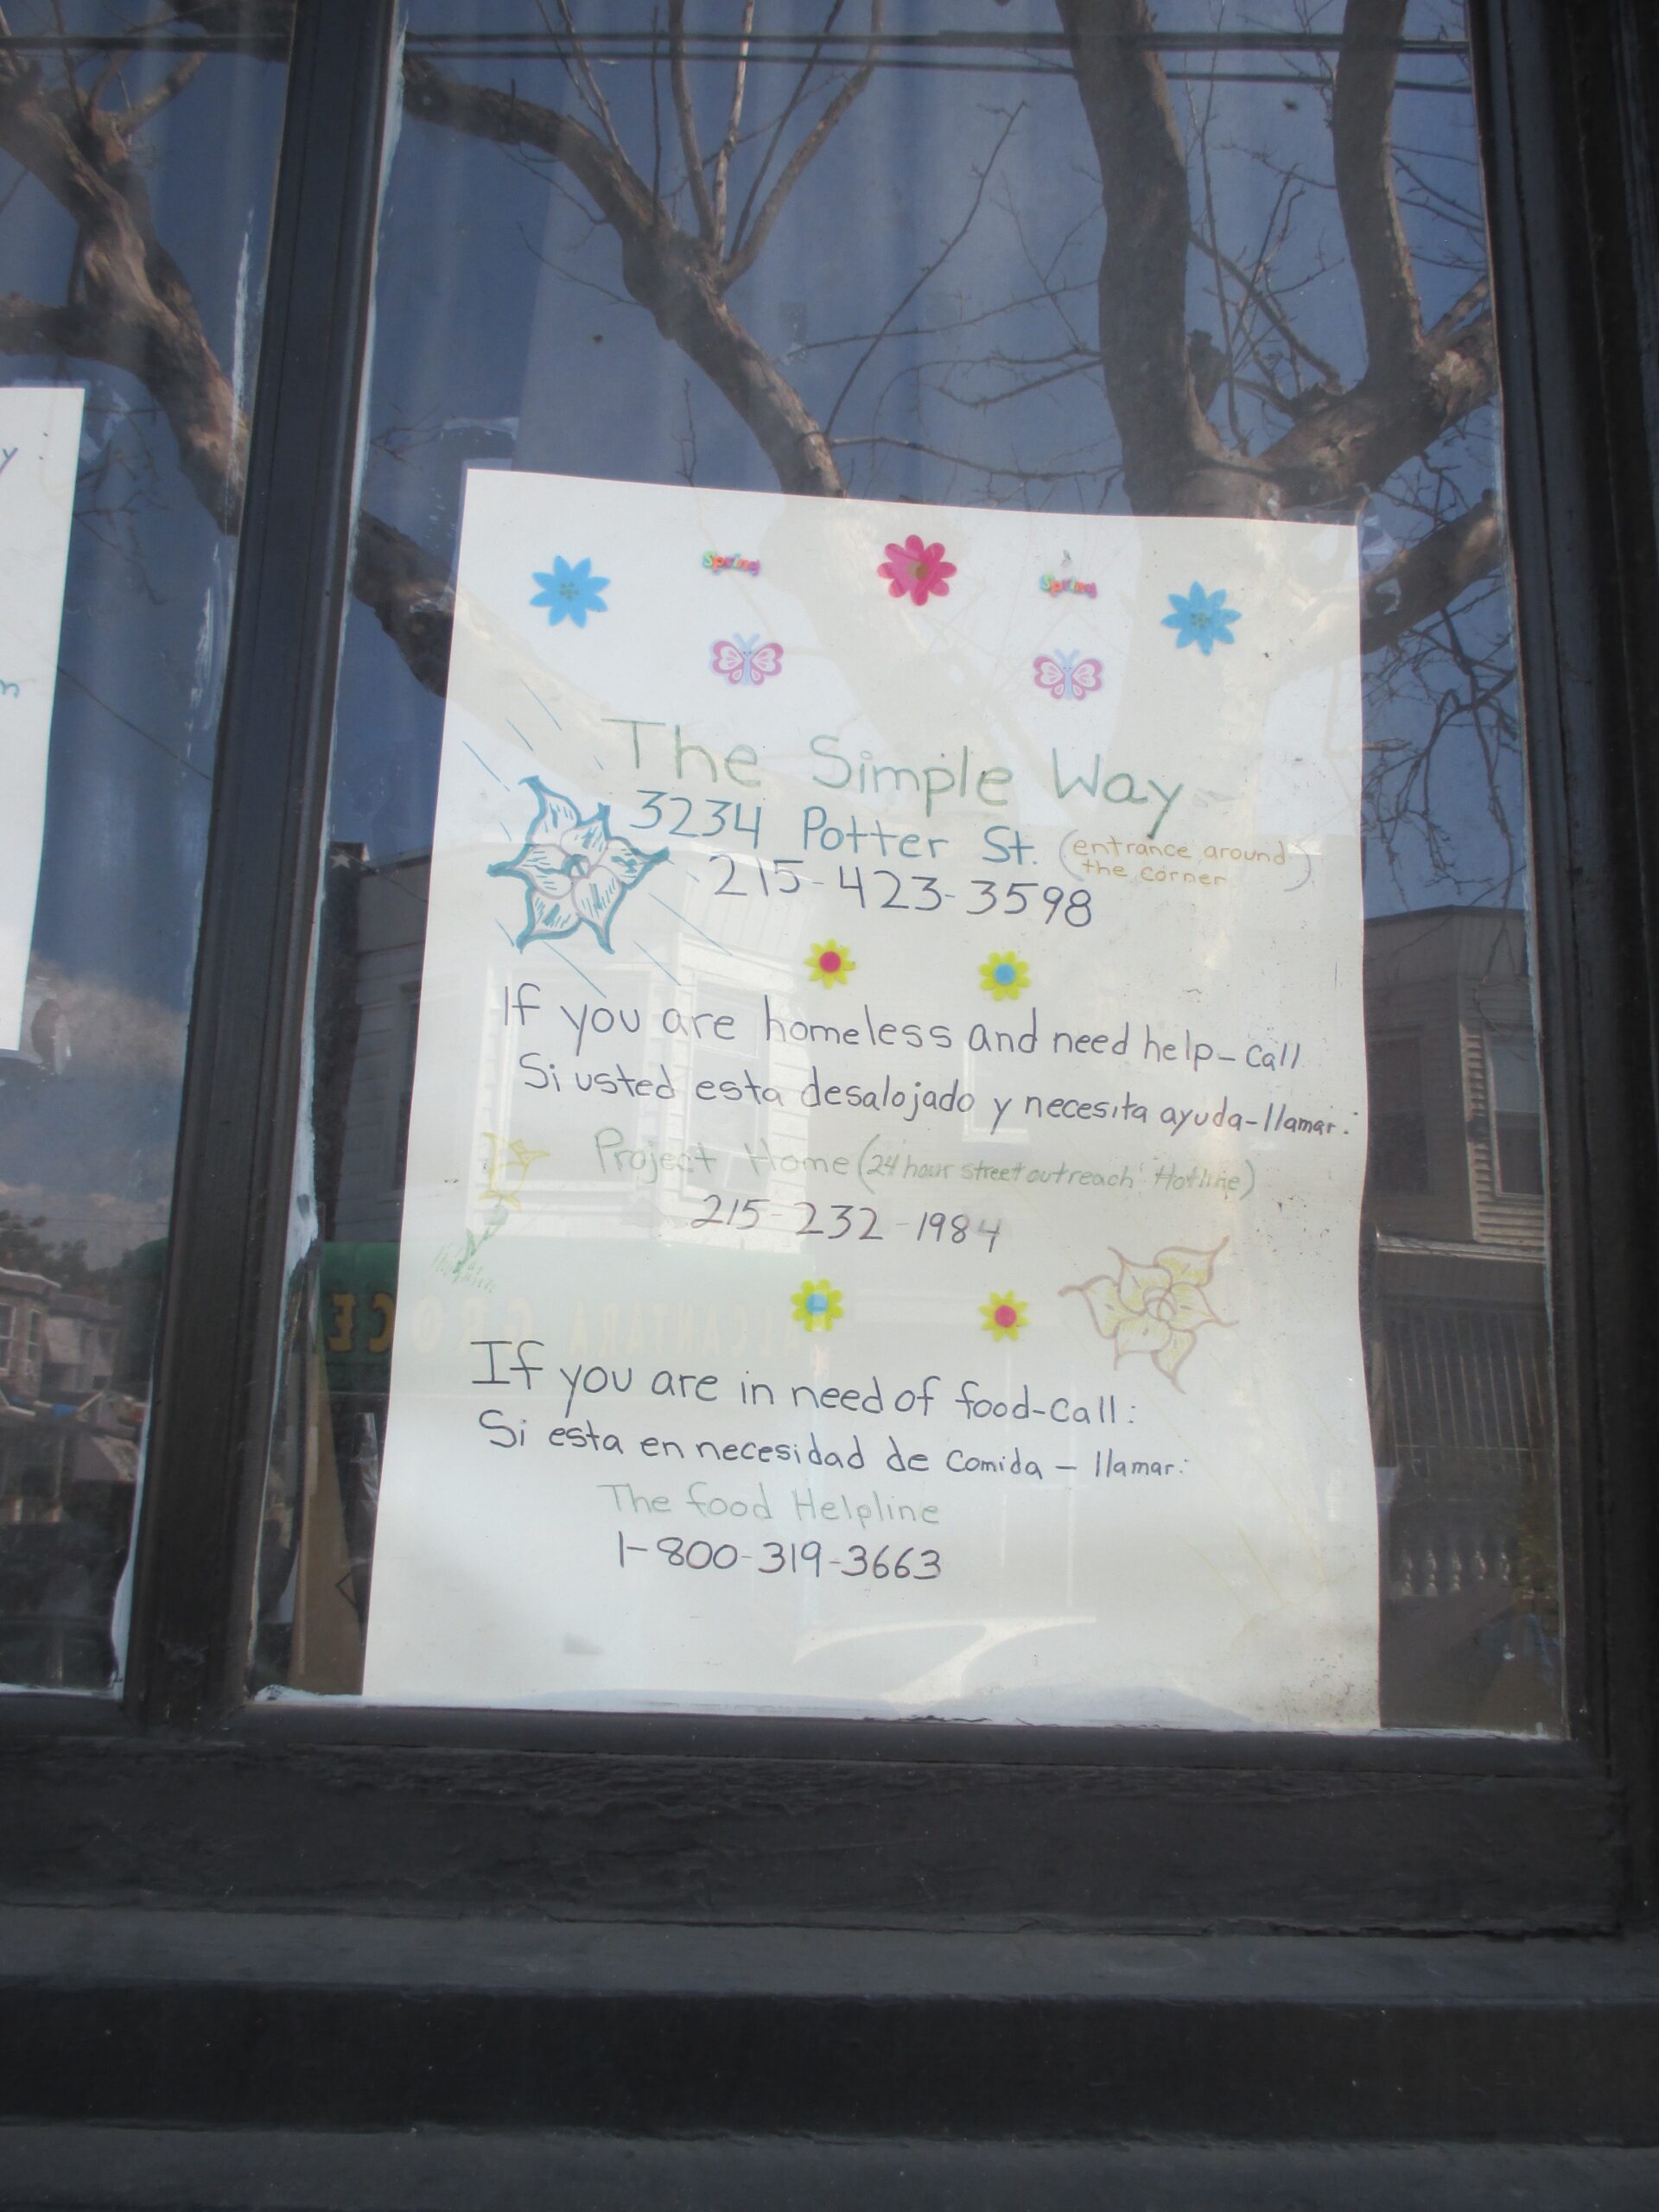 Spring
Spring
The Simple Way
3234 Potter St. (entrance around
the corner)
215-423-3598
If you are homeless and need help-call
Si usted esta desalojado y necesita ayuda-llamar:
Project Home (24 hour street outreach Hotline)
215-232-1984
If you are in need of food-call:
Si esta en necesidad de comida - llamar:
The food Helpline
1-800-319-3663